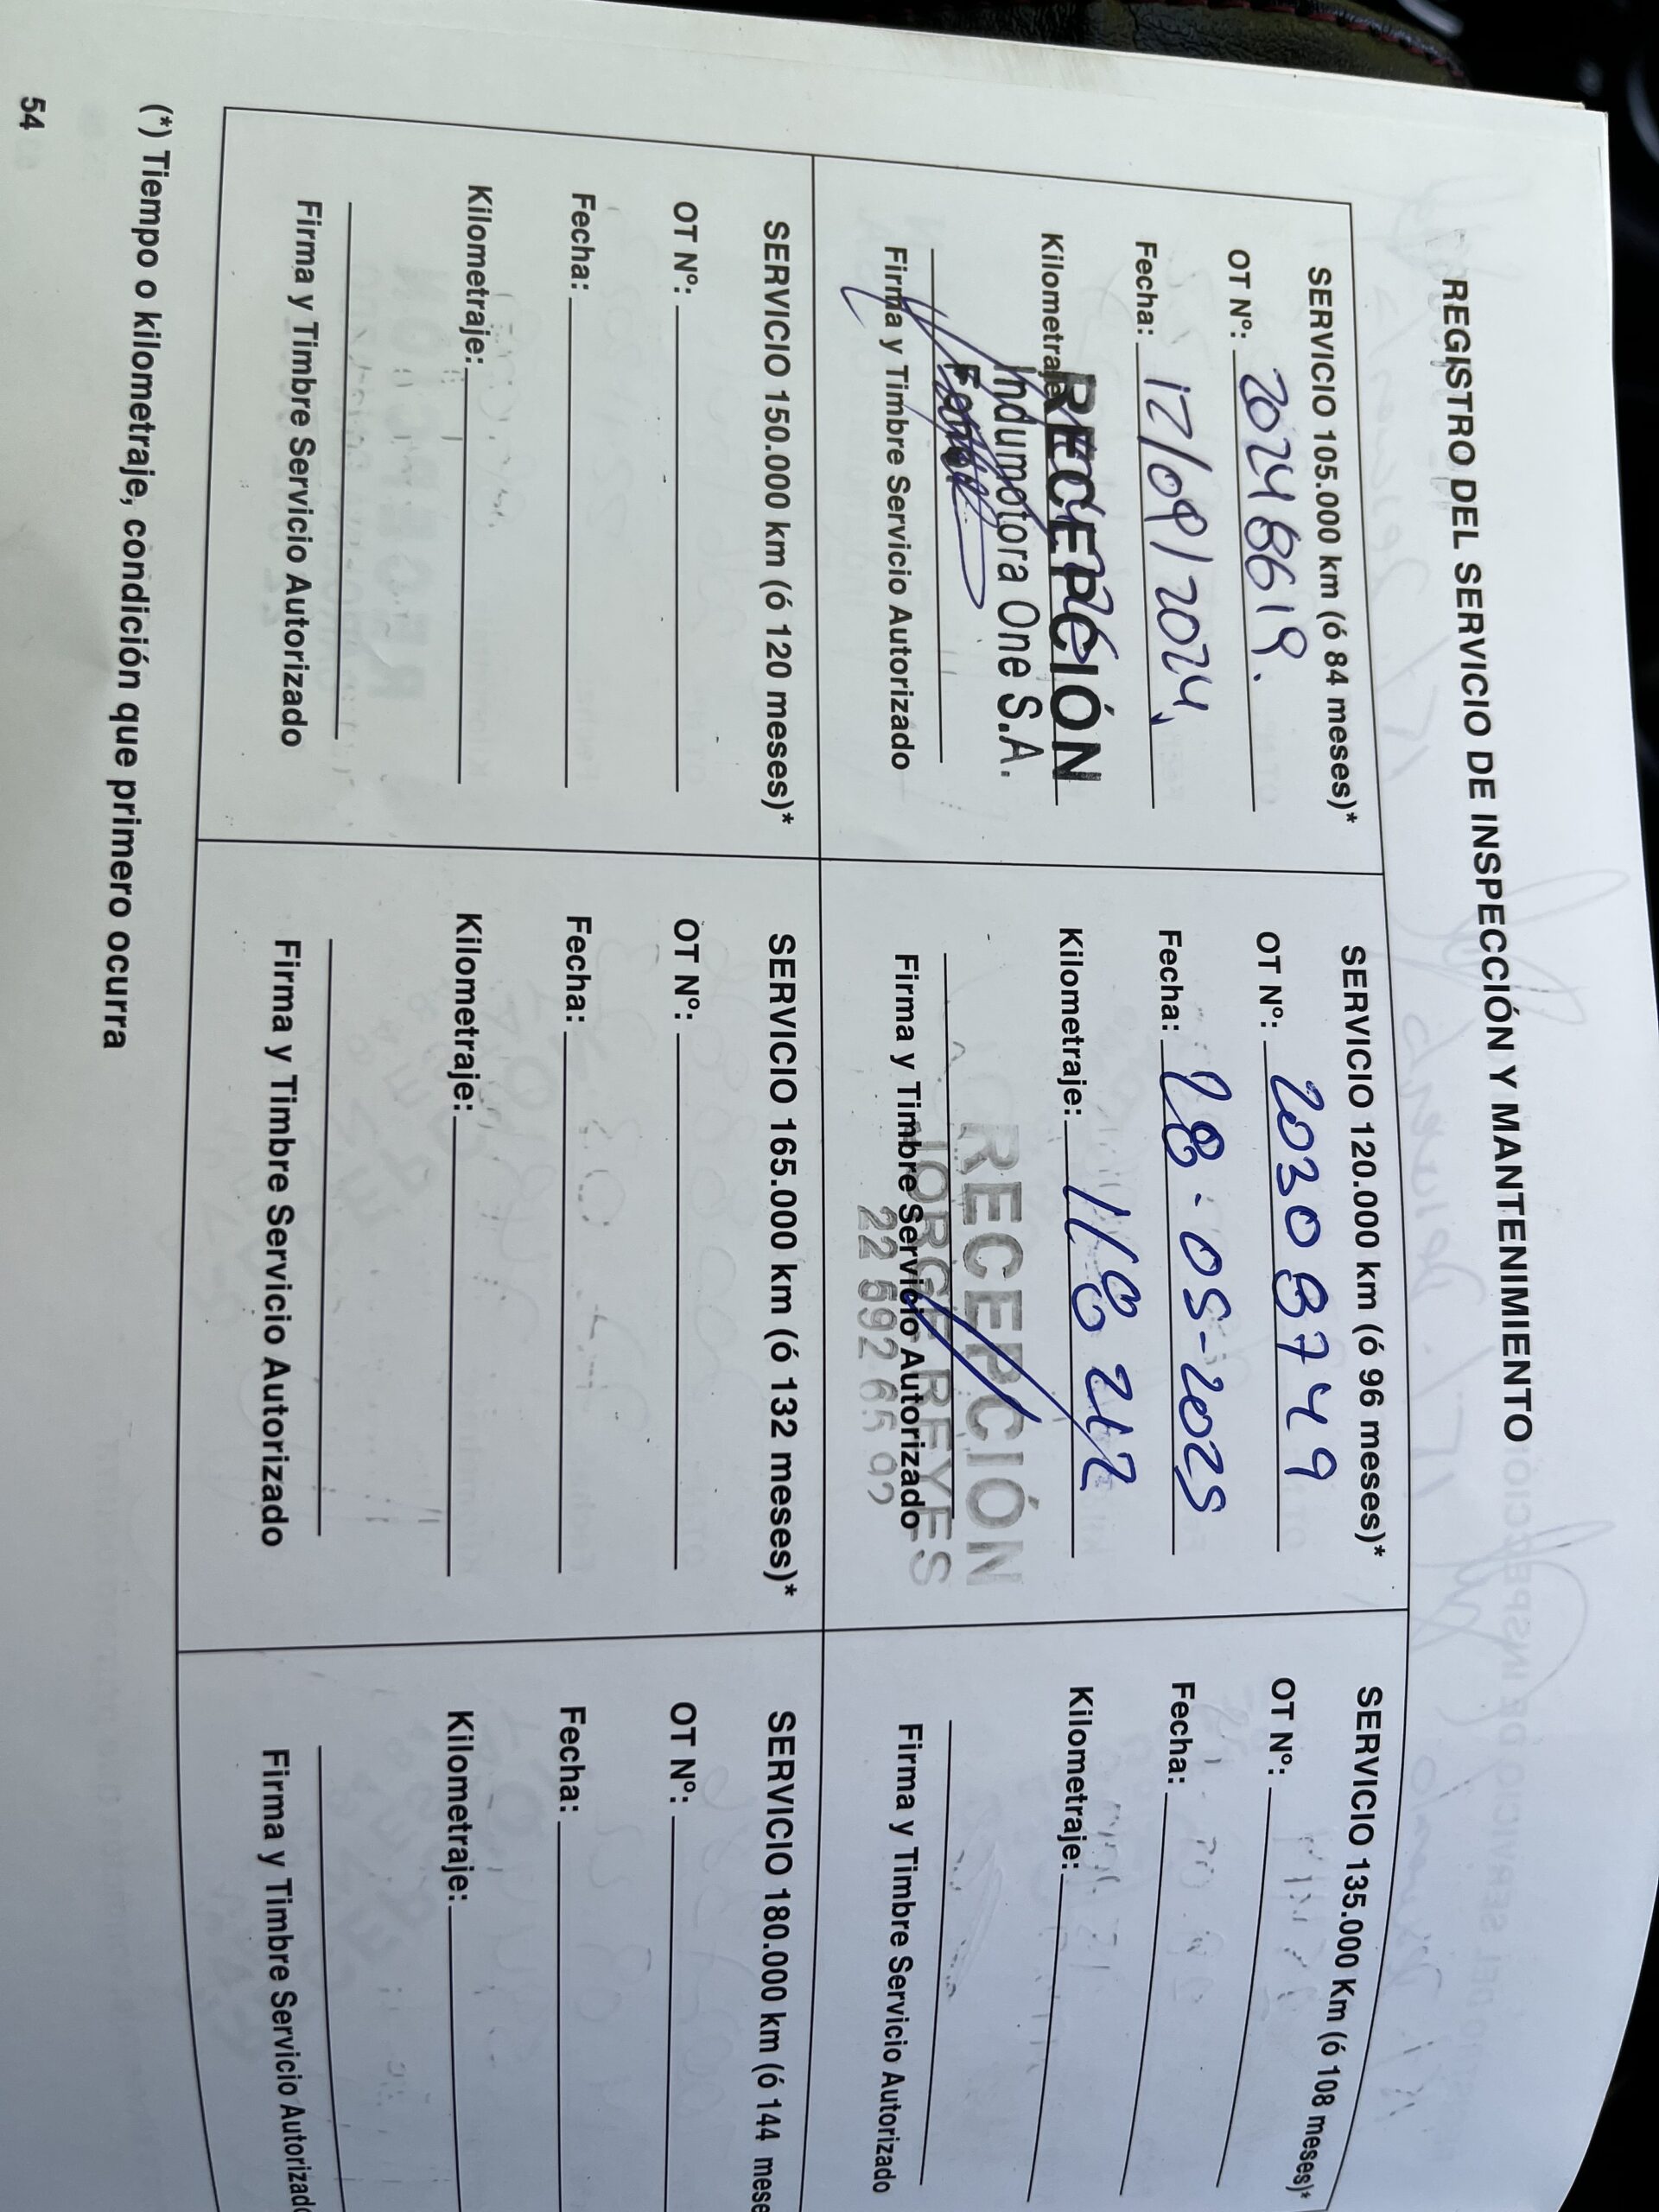 REGISTRO DEL SERVICIO DE INSPECCIÓN Y MANTENIMIENTO
SERVICIO 105.000 km (ó 84 meses)*
OT Nº: 20248619.
Fecha: 12/09/2024
Kilometraje:
RECEPCIÓN
Indumotora One S.A.
Firma y Timbre Servicio Autorizado
SERVICIO 120.000 km (ó 96 meses)*
OT Nº: 20308749
Fecha: 28-05-2025
Kilometraje: 118 212
RECEPCIÓN
JORGE REYES
Firma y Timbre Servicio Autorizado
22 592 65 92
SERVICIO 135.000 Km (ó 108 meses)*
OT Nº:
Fecha:
Kilometraje:
Firma y Timbre Servicio Autorizado
SERVICIO 150.000 km (ó 120 meses)*
OT Nº:
Fecha:
Kilometraje:
Firma y Timbre Servicio Autorizado
SERVICIO 165.000 km (ó 132 meses)*
OT Nº:
Fecha:
Kilometraje:
Firma y Timbre Servicio Autorizado
SERVICIO 180.000 km (ó 144 mese
OT Nº:
Fecha:
Kilometraje:
Firma y Timbre Servicio Autorizado
(*) Tiempo o kilometraje, condición que primero ocurra
54